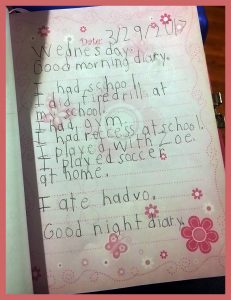 Date: 3/29/2017
Wednesday.
Good morning diary.
I had school.
I did firedrill at
my school.
I had gym.
I had recess at school.
I played with Zoe.
I played soccer
at home.
I ate hadvo.
Good night diary.